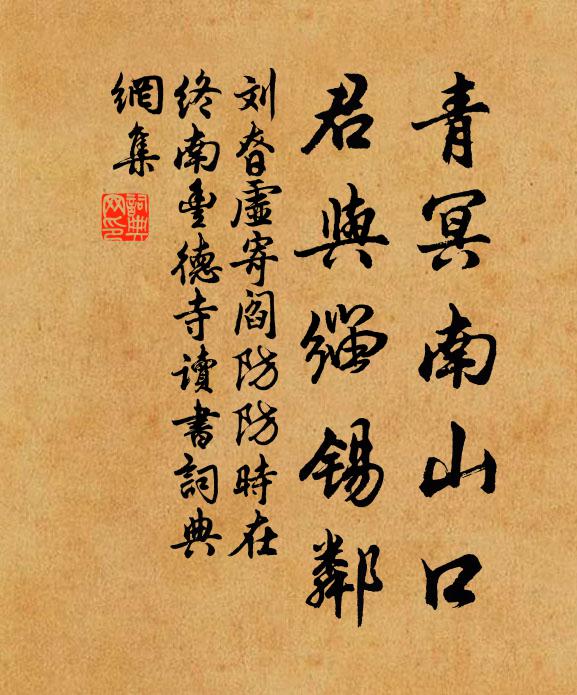 青冥南山口
君與緇錫鄰
刘眘虛寄閻防防時在
終南豐德寺讀書詞典
網集
詞典
网印